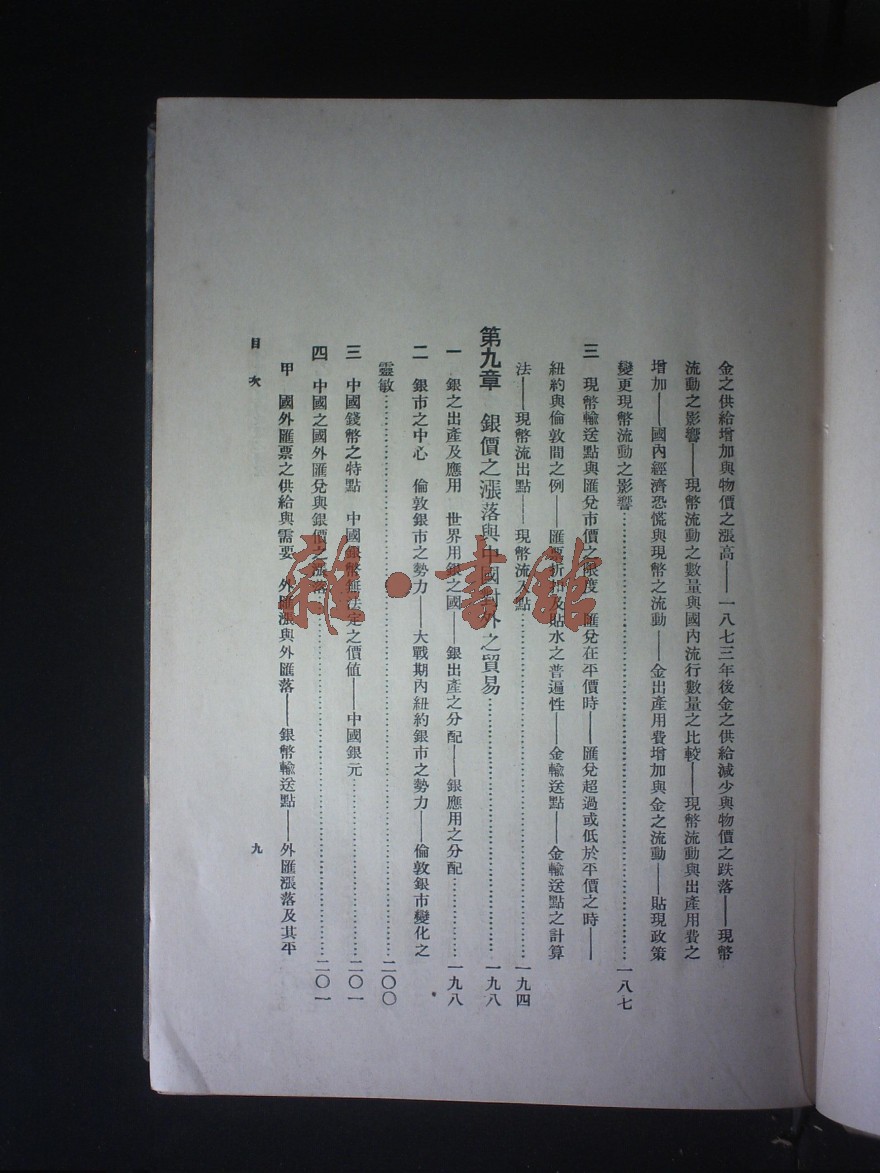 金之供給增加與物價之漲高——一八七三年後金之供給減少與物價之跌落——現幣
流動之影響——現幣流動之數量與國內流行數量之比較——現幣流動與出產用費之
增加——國內經濟恐慌與現幣之流動——金出產用費增加與金之流動——貼現政策
變更現幣流動之影響……一八七
三 現幣輸送點與匯兌市價之限度 匯兌在平價時——匯兌超過或低於平價之時——
紐約與倫敦間之例——匯票折扣及貼水之普遍性——金輸送點——金輸送點之計算
法——現幣流出點——現幣流入點……一九四
第九章 銀價之漲落與中國對外之貿易……一九八
一 銀之出產及應用 世界用銀之國——銀出產之分配——銀應用之分配……一九八
二 銀市之中心 倫敦銀市之勢力——大戰期內紐約銀市之勢力——倫敦銀市變化之
靈敏……二〇〇
三 中國錢幣之特點 中國銀幣無法定之價值——中國銀元……二〇一
四 中國之國外匯兌與銀價之漲落……二〇一
甲 國外匯票之供給與需要 外匯漲與外匯落——銀幣輸送點——外匯漲落及其平
目次
九
雜·書館